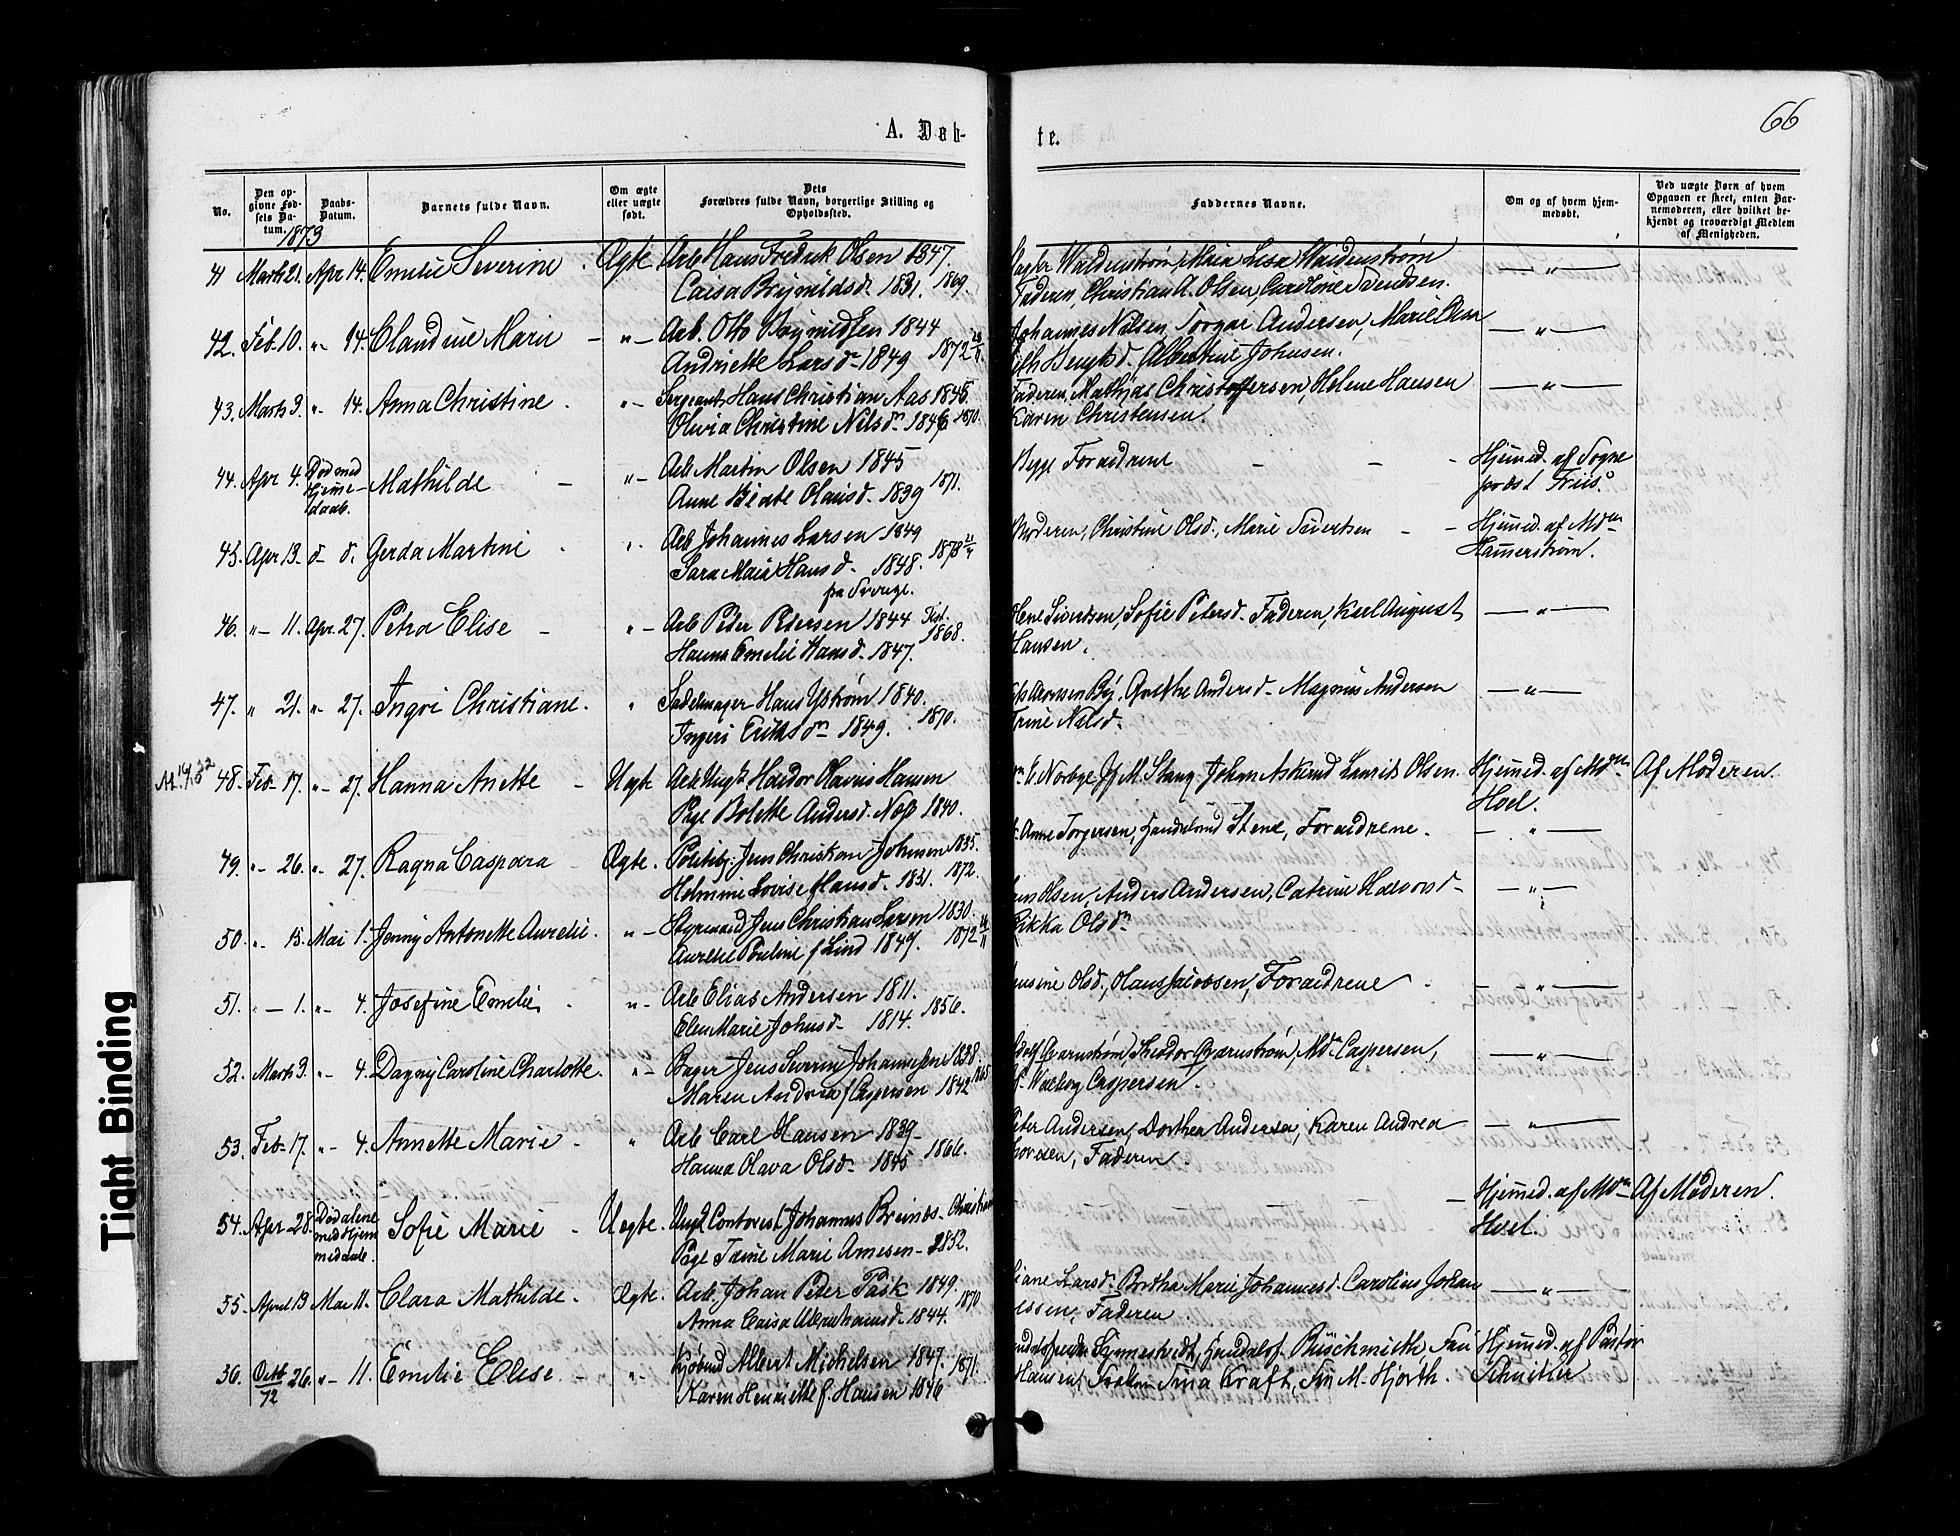 66
A. Døb-
te.
No.
Den op-
givne Fød-
sels Da-
tum.
Daabs-
Datum.
Barnets fulde Navn.
Om ægte
eller uægte
født.
Dets
Forældres fulde Navn, borgerlige Stilling og
Opholdssted.
Faddernes Navne.
Om og af hvem hjem-
medøbt.
Ved uægte Børn af hvem
Opgaven er skeet, enten Bar-
nemoderen, eller hvilket be-
kjendt og troværdigt Medlem
af Menigheden.
1873
41 Marts 21. Apr 14. Emilie Severine. Ægte. Arb Hans Fredrik Olsen 1847. Waldenstrøm, Maia Lisa Waldenstrøm — „ —
Caisa Brynildsd. 1831. 1869. Faderen, Christian A. Olsen, Caroline Svendsen.
42. Feb. 10. „- 14. Claudine Marie - „- Arb. Otto Brynildsen 1844 Johannes Nilsen, Torgar Andersen, Marie — „ —
Andriette Larsd. 1849 1872 Bengtsd. Albertine Johnsen.
43. Marts 3. „- 14. Anna Christine. „- Sergeant Hans Christian Aas 1845. Faderen, Mathias Christoffersen, Helene Hansen — „ —
Olivia Christine Nilsdr 1846. 1870. Karen Christensen.
44. Apr 4. Død med Hjemme-daab. Mathilde - „- Arb Martin Olsen 1845 Begge Forældrene - - - Hjemmed. af Sogne
Anne Beate Olausd. 1839 1871. provst Friis.
45. Apr 13. d d. Gerda Martine. „. Arb Johannes Larsen 1849 Moderen, Christine Olsd., Marie Sivertsen - - Hjemmed. af Mdm
Sara Maia Hansd. 1848. 1873 Hammerstrøm.
fra Sverige.
46. „- 11. Apr. 27. Petra Elise - „- Arb Peder Pedersen 1844 Fist. Sivertsen, Sofie Petersd. Faderen, Karl August — „ —
Hanna Emelie Hansd. 1847. 1868. Hansen.
47. „ 21. „- 27. Ingri Christiane. „ Sadelmager Hans Ystrøm 1840. Aronsen By, Grethe Andersd. Magnus Andersen — „ —
Ingeri Eriksdr 1849. 1870. Trine Nilsd.
48. Feb 17. „- 27. Hanna Anette - Uægte Arb Ungk Haldor Olavus Hansen Norbye, Jf M. Stang, Johan Askerud, Laurits Olsen. Hjemmed. af Mdm Af Moderen.
Pige Bolette Andersd. Næs 1840. Hoel.
49. „- 26. „- 27. Ragna Caspara - Ægte. Politibj. Jens Christian Johnsen 1835. Anne Torgersen, Handelsmd Stene, Forældrene. — „ —
Helmine Lovise f Hansd. 1831. 1872.
50. „- 15. Mai 1. Jenny Antonette Aurelie. „- Styrmand Jens Christian Larsen 1830. Olsen, Anders Andersen, Catrine Halvorsd. — „ —
Aurelie Pouline f Lind 1847. 1872 Rikka Olsdr
51. „- 1. „- 4. Josefine Emelie. „- Arb Elias Andersen 1811. Olsd., Hans Jacobsen, Forældrene — „ —
Elen Marie Johnsd. 1814. 1856.
52. Marts 3. „- 4. Dagny Caroline Charlotte. „- Bager Jens Severin Johannesen 1838. Gjernstrøm, Theodor Gjernstrøm, Mdm Caspersen, — „ —
Maren Andrea f Caspersen 1842 Walborg Caspersen.
53. Feb 17. „- 4. Annette Marie - „ Arb Carl Hansen 1839- Peter Andersen, Dorthea Andersen, Karen Andrea — „ —
Hanna Olava Olsd. 1845 1866. Faderen.
54. Apr 28. Død alene med Hjemmedaab. Sofie Marie - Uægte. Ungk Contorist Johannes Breines- Christiania - Hjemmed. af Mdm Af Moderen.
Pige Trine Marie Arnesen- 1852. Hoel.
55. April 13 Mai 11. Clara Mathilde. Ægte. Arb. Johan Peter Pask 1849. Larsd. Bertha Marie Johannesd. Carolius Johan — „ —
Anna Caisa Abrahamsd. 1844. 1870 Faderen.
56. Octb/72 26. „- 11. Emilie Elise. - „- Kjøbmd Albert Michelsen 1847. 1871. Synnestvedt, Handelsf. Buschmith, Fru Hjemmed. af Pastor
Karen Henriette f. Hansen 1846 Hansen, Frøken Tina Kraft, M. Hjorth. Schnitler
Tight Binding